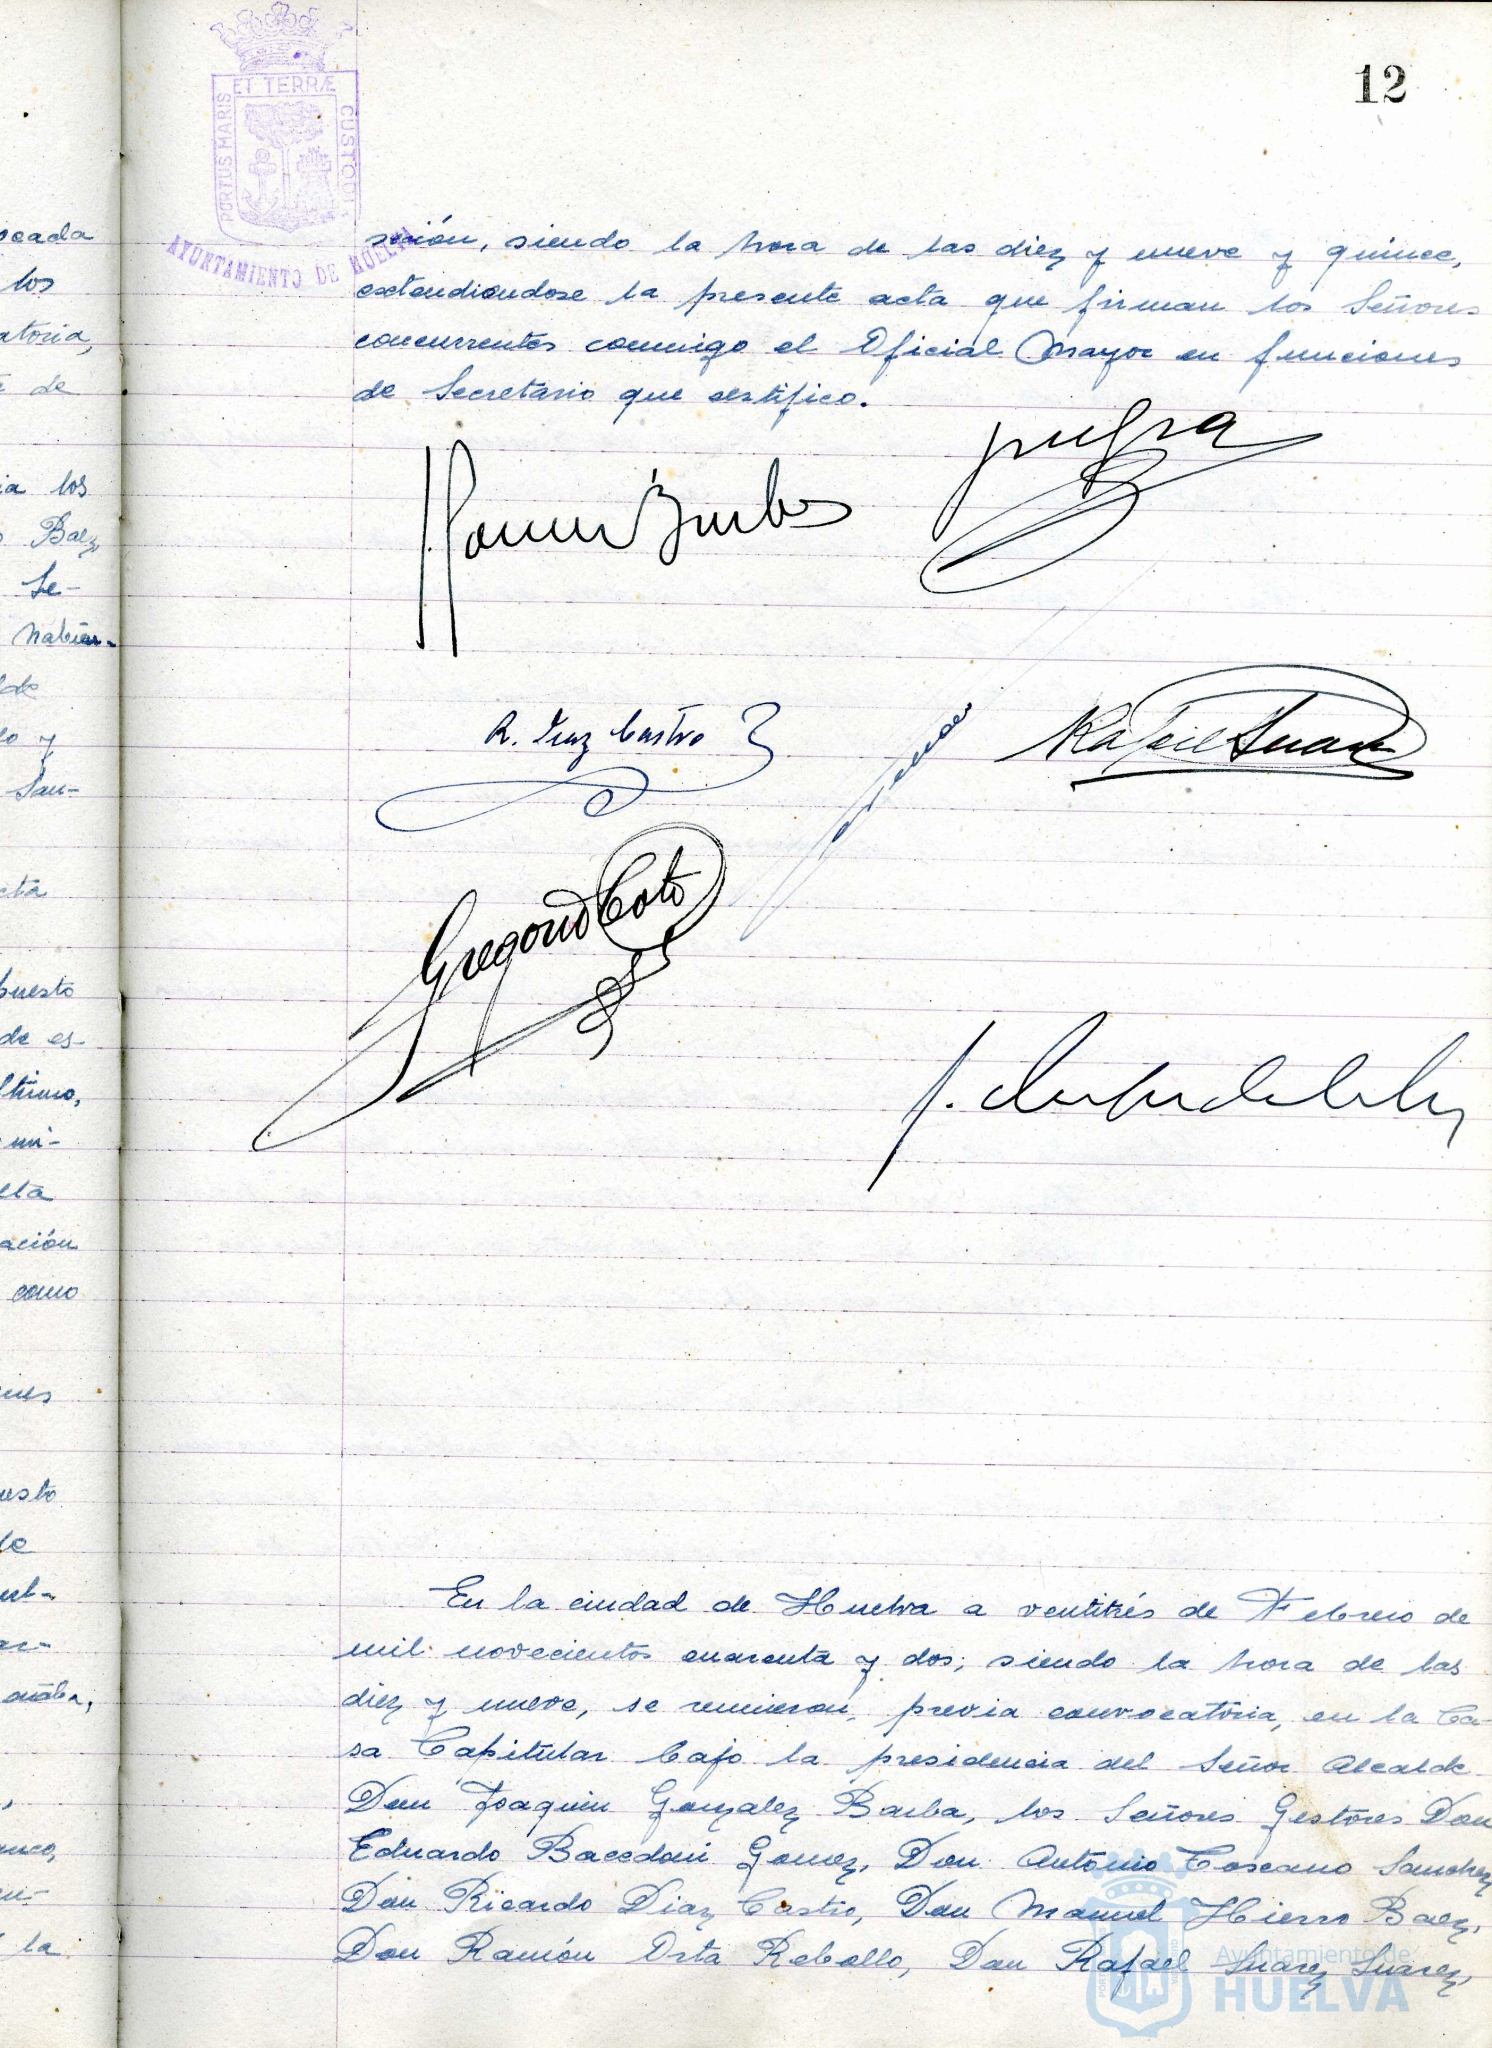 12
ET TERRÆ
PORTUS MARIS
CUSTODI
AYUNTAMIENTO DE HUELVA
sesión, siendo la hora de las diez y nueve y quince,
extendiendose la presente acta que firman los Señores
concurrentes conmigo el Oficial Mayor en funciones
de Secretario que certifico.
R. Diaz Castro
Rafael Suarez
Gregorio Coto
En la ciudad de Huelva a ventitrés de Febrero de
mil novecientos cuarenta y dos; siendo la hora de las
diez y nueve, se reunieron, previa convocatoria, en la Ca-
sa Capitular bajo la presidencia del Señor Alcalde
Don Joaquin Gonzalez Barba, los Señores Gestores Don
Eduardo Bacedoni Gomez, Don Antonio Toscano Sanchez
Don Ricardo Diaz Castro, Don Manuel Hierro Baez,
Don Ramón Orta Rebollo, Don Rafael Suarez Suarez,
Ayuntamiento de
HUELVA
ocada
los
atoria,
de
ia los
Baez
Se-
habien-
lo y
San-
cta
puesto
de es-
ltimo,
mi-
ación
como
esto
la